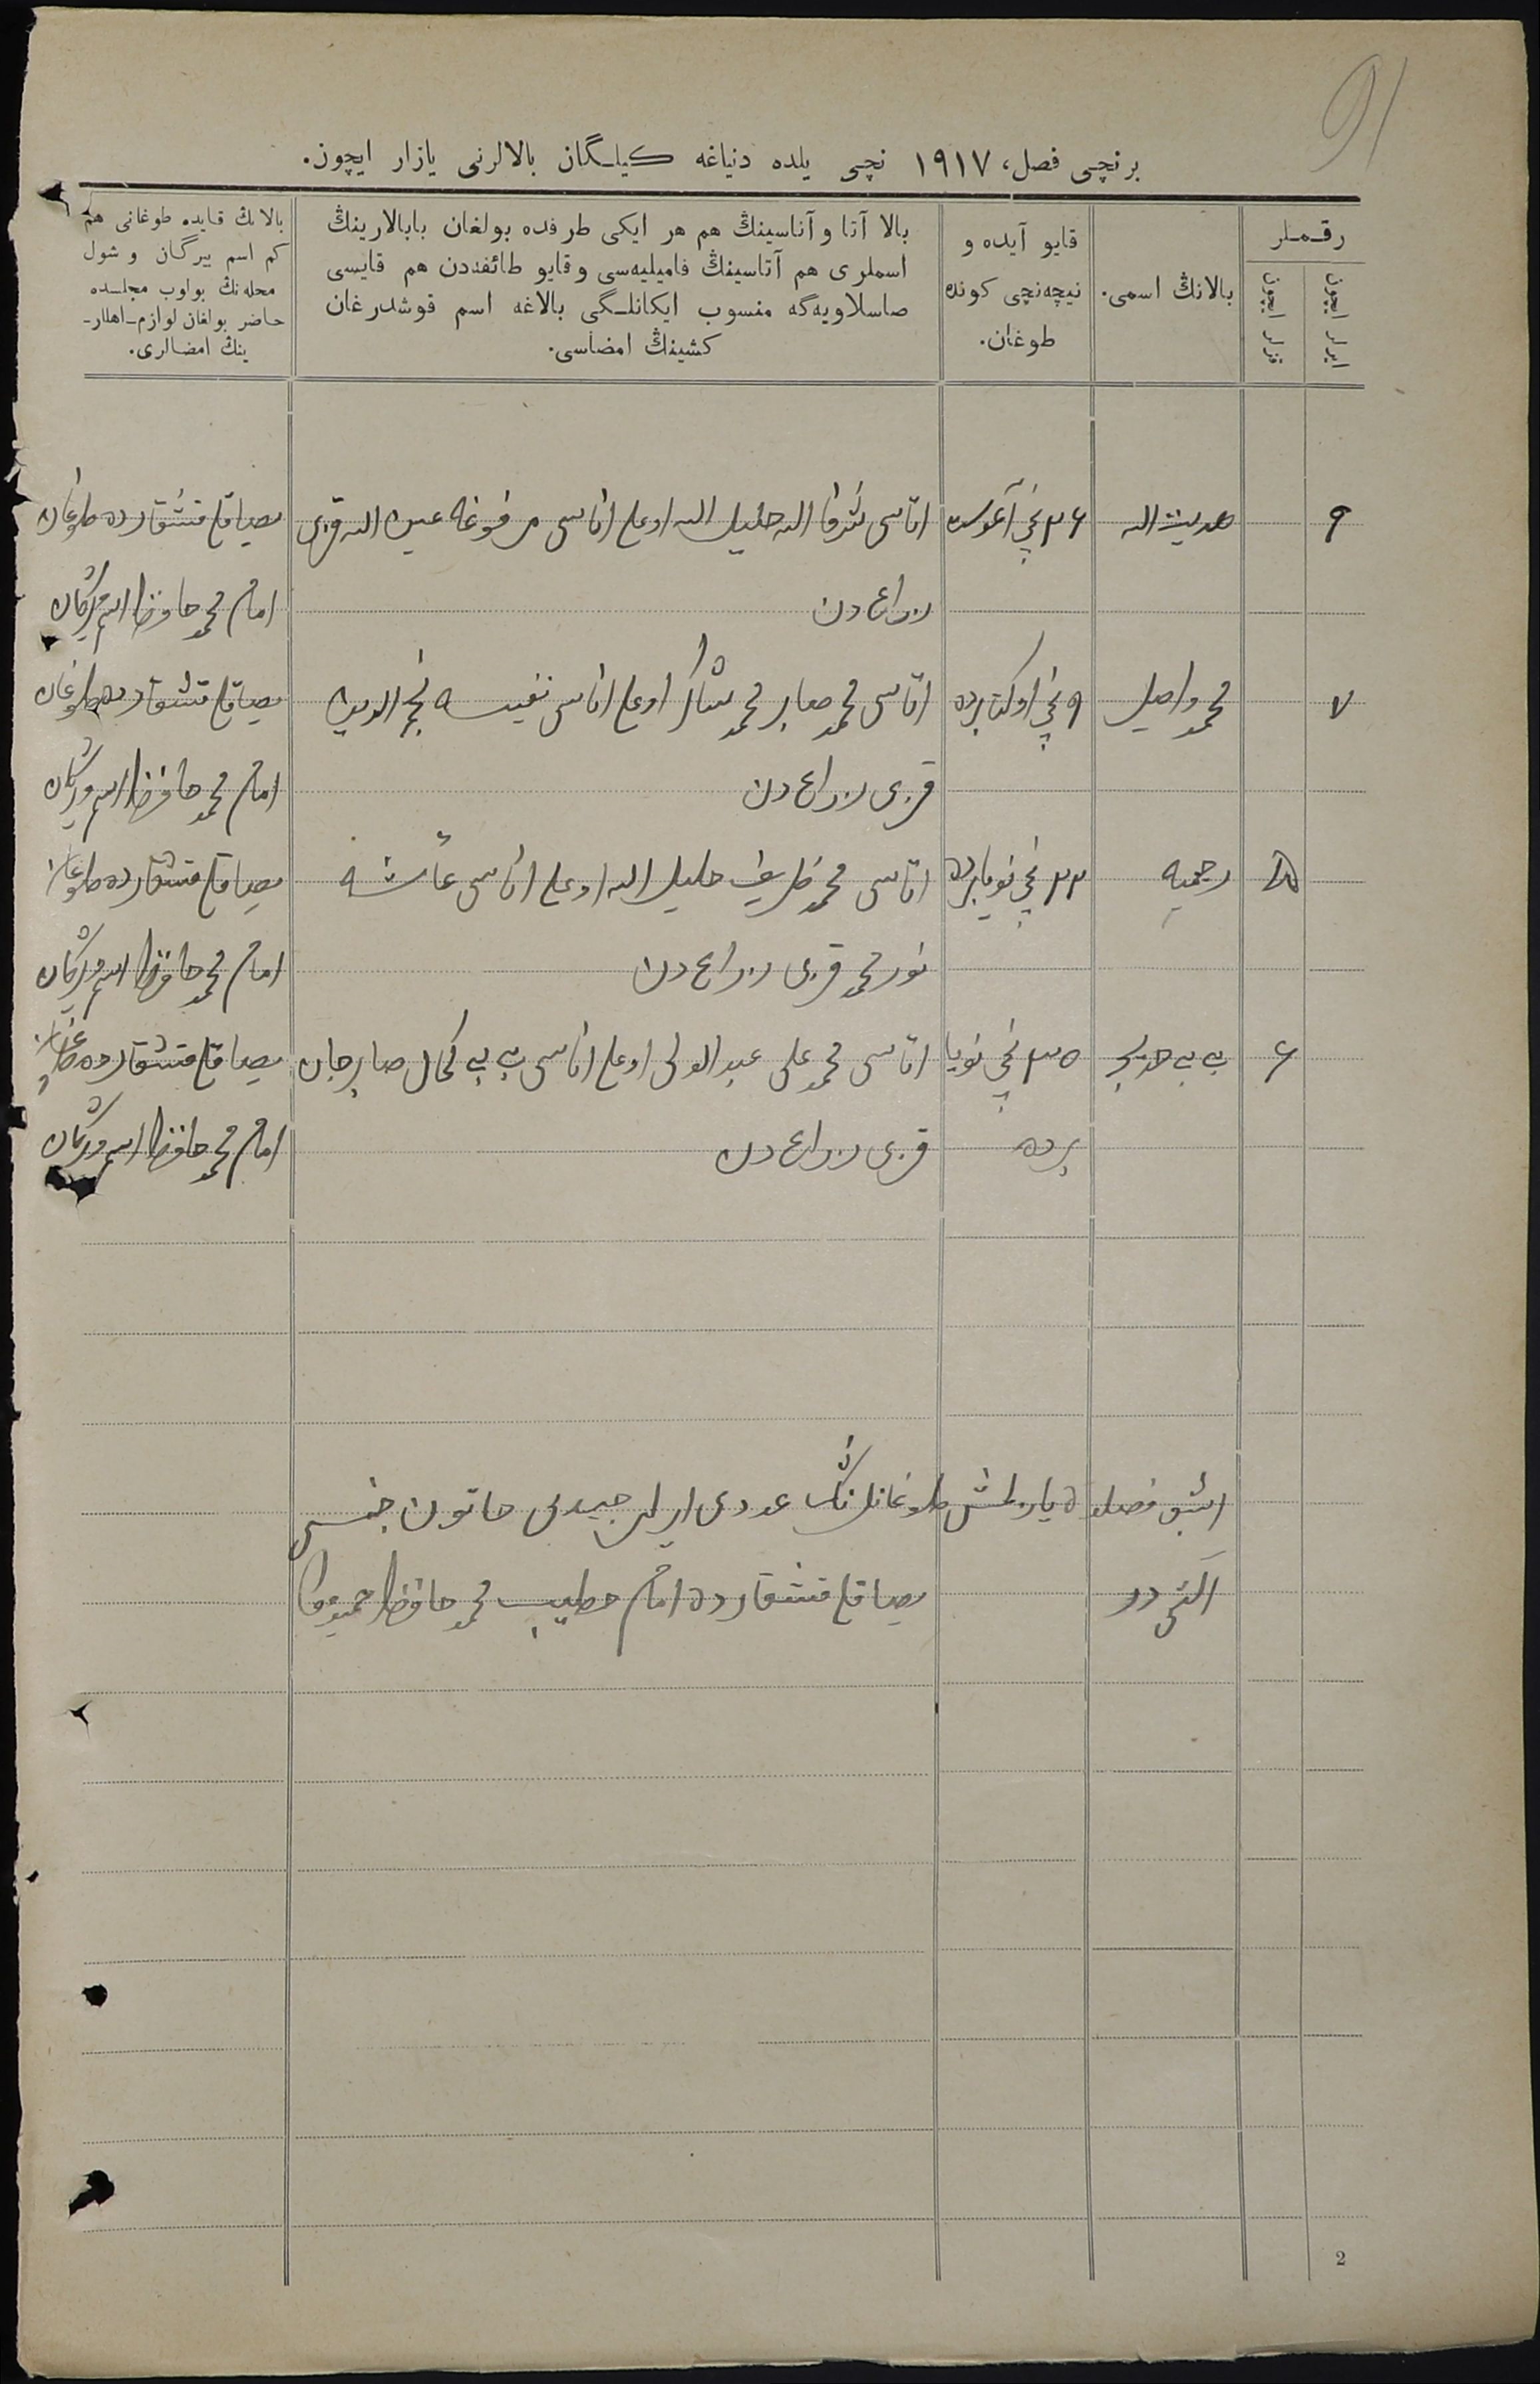 91
برنچی فصل، ١٩١٧ نچی یلده دنیاغه کیلگان بالالرنی یازار ایچون.
رقملر
ایرلر ایچون
قزلر ایچون
بالانڭ اسمی.
قایو آیده و
نیچه‌نچی کونده
طوغان.
بالا آتا و آناسینڭ هم هر ایکی طرفده بولغان بابالارینڭ
اسملری هم آتاسینڭ فامیلیه‌سی وقایو طائفه‌دن هم قایسی
صاسلاویه‌گه منسوب ایکانلـگی بالاغه اسم قوشدرغان
کشینڭ امضاسی.
بالانڭ قایده طوغانی هم
کم اسم بیرگان و شول
محله‌نڭ بولوب مجلـسده
حاضر بولغان لوازم-اهللر-
ینڭ امضالری.
٩ هدیت الله ٢٦ نچی آغوستده اتاسی شرف الله خلیل الله اوغلی اناسی مرفوغه عین الله قزی قشقارده طوغان
دن امام محمد حافظ اسم ویرگان
٧ محمد واصیل ٩ نچی اوکتابرده اتاسی محمد صابر محمد شاکر اوغلی اناسی نفیسه نجم الدین قشقارده طوغان
قزی دن امام محمد حافظ اسم ویرگان
۵ رحیمه ٢٢ نچی نویابرده اتاسی محمد ظریف خلیل الله اوغلی اناسی عائشه قشقارده طوغان
نور محمد قزی دن امام محمد حافظ اسم ویرگان
٦ بی بی خدیجه ٢٥ نچی نویا اتاسی محمد علی عبد الولی اوغلی اناسی بی بی کمال صابرجان قشقارده طوغان
برده قزی دن امام محمد حافظ اسم ویرگان
اشبو فصلده یازلمش طوغانلرنڭ عددی ایرلر جیدی خاتون جنسی
آلتی در قشقارده امام خطیب محمد حافظ
2